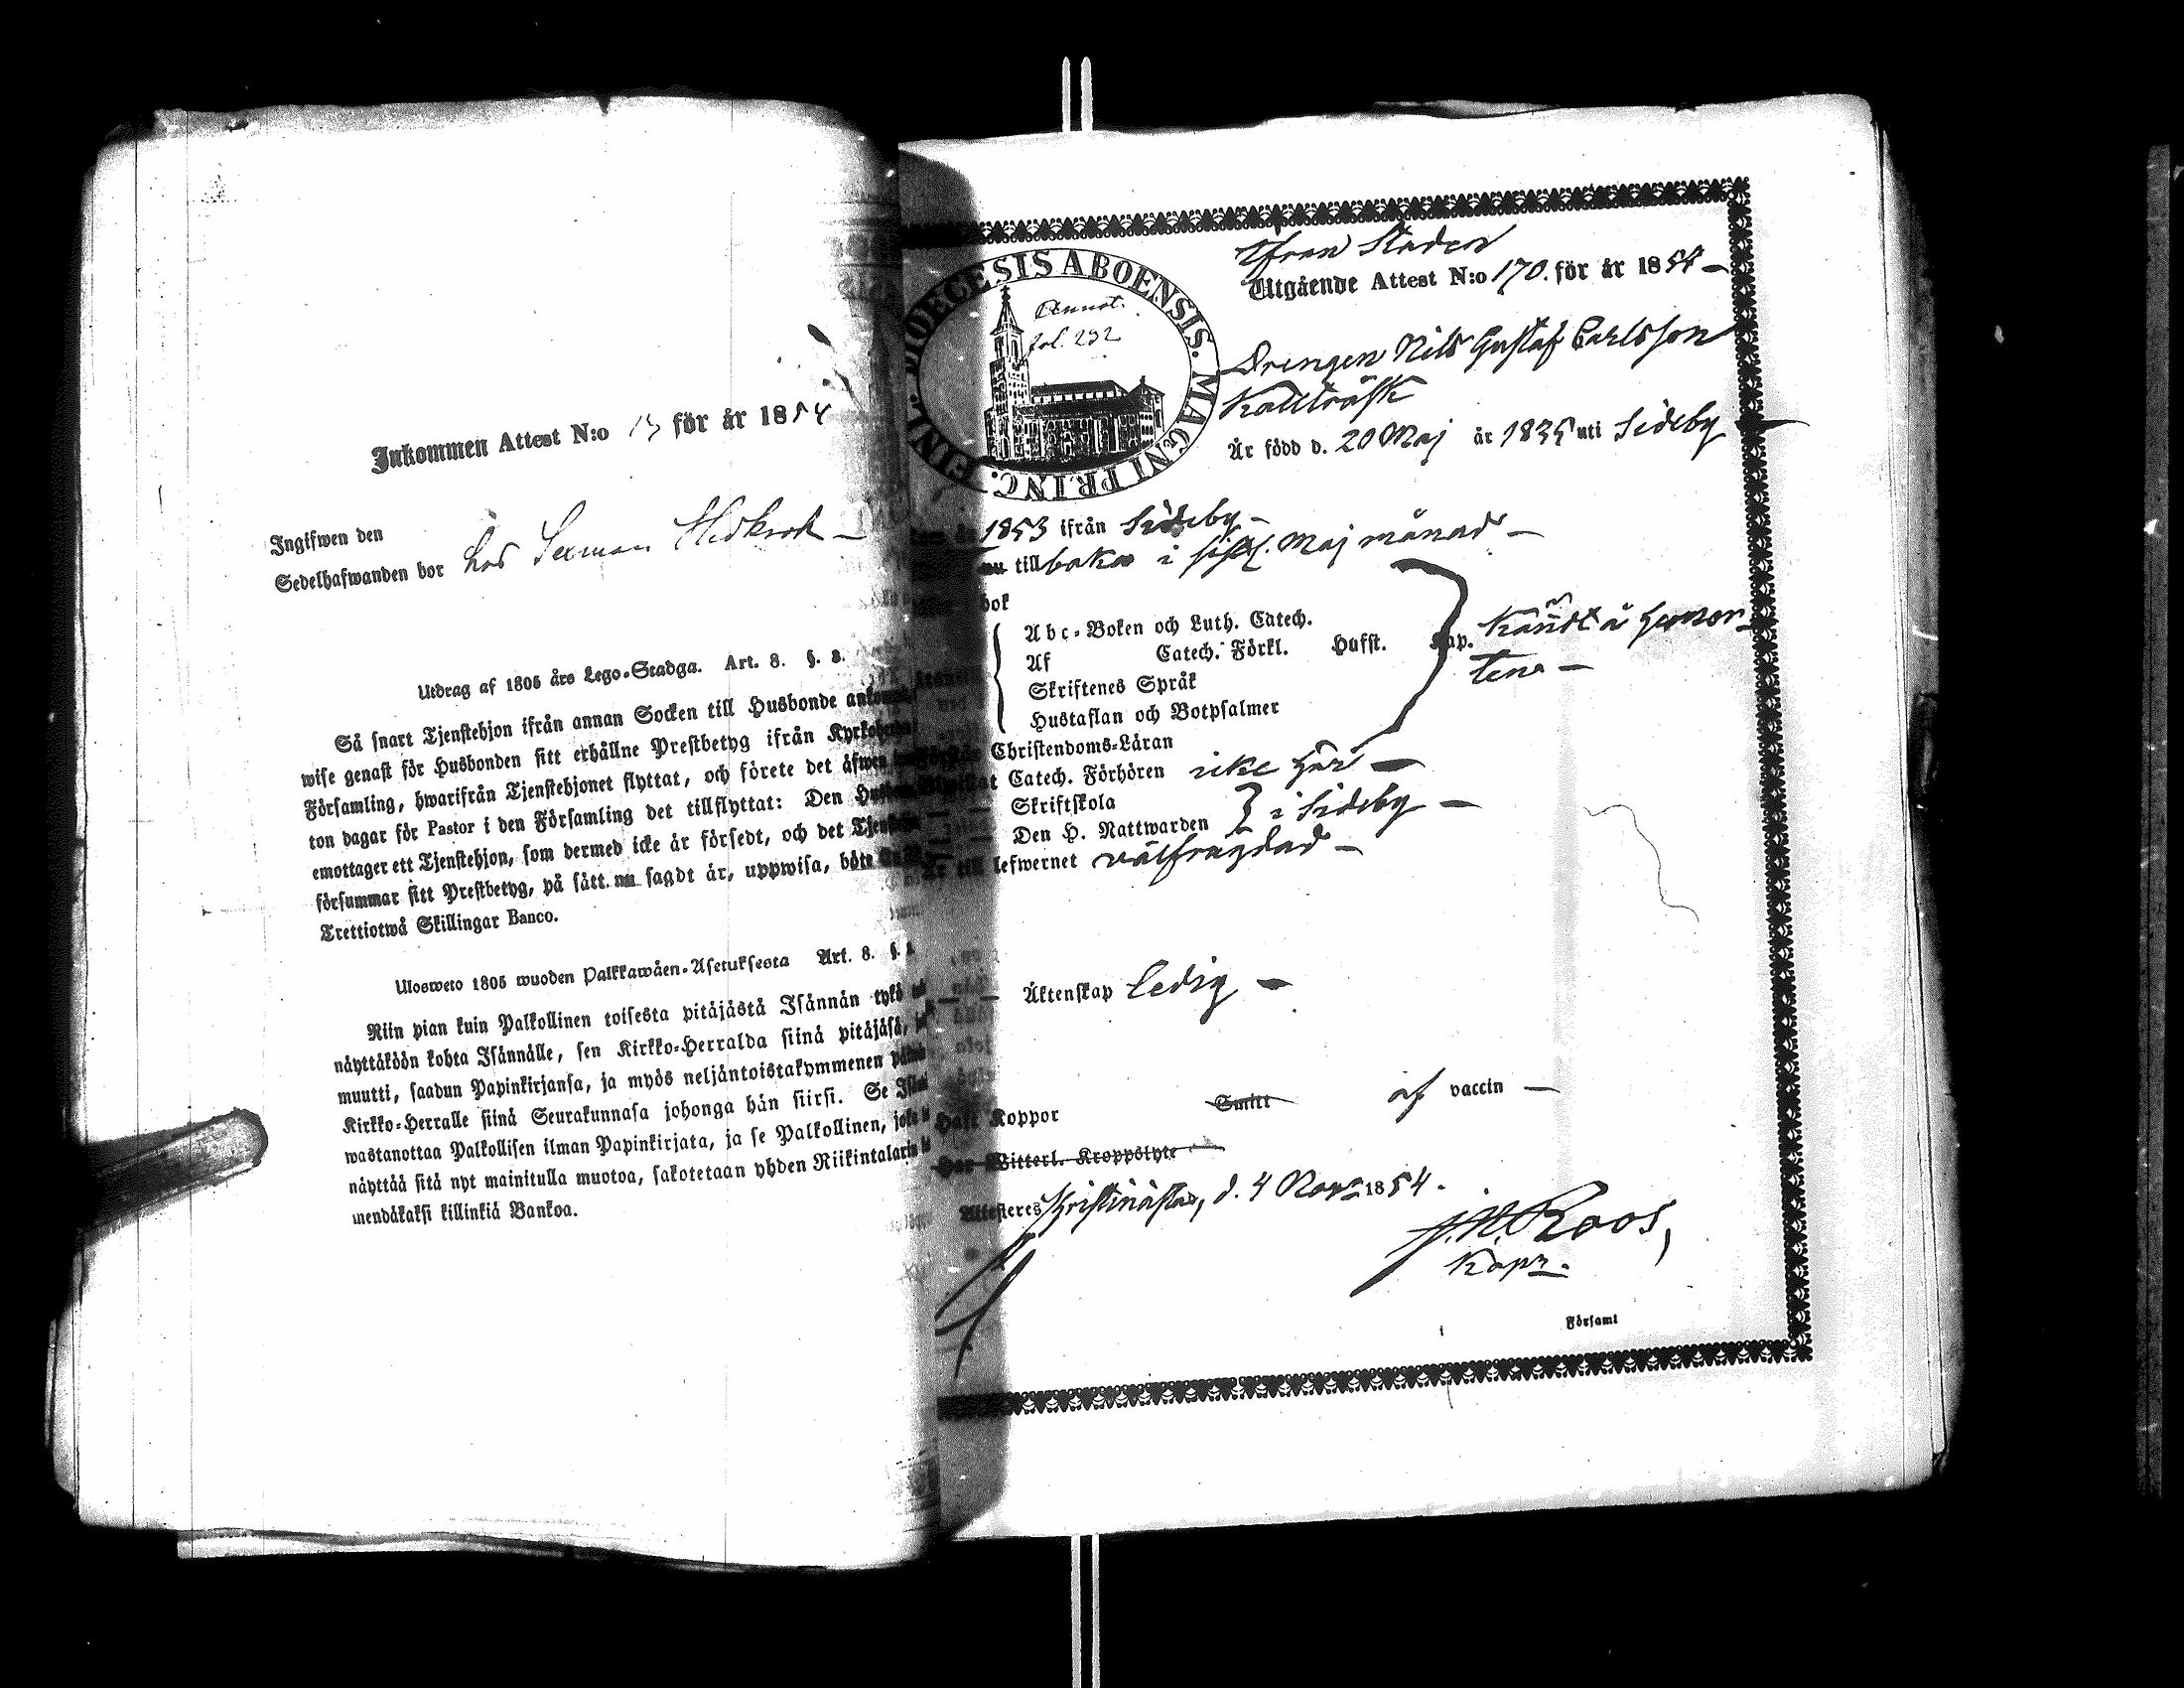 Inkommen Attest N:o 13 för år 1854
Ingifwen den
Sedelhafwanden bor hos
Utdrag af 1805 års Lego-Stadga. Art. 8. §. 8.
Så snart Tjenstehjon ifrån annan Socken till Husbonde
wise genast för Husbonden sitt erhållne Prestbetyg ifrån
Församling, hwarifrån Tjenstehjonet flyttat, och förete det äfwen
ton dagar för Pastor i den Församling det tillflyttat: Den
emottager ett Tjenstehjon, som dermed icke är försedt, och det
försummar sitt Prestbetyg, på sätt nu sagdt är, uppwisa, böte
Trettiotwå Skillingar Banco.
Ulosweto 1805 wuoden Palkkawäen-Asetuksesta Art. 8. §.
Niin pian kuin Palkollinen toisesta pitäjästä Isännän tykö
näyttäköön kohta Isännälle, sen Kirkko-Herralda siinä pitäjäsä,
muutti, saadun Papinkirjansa, ja myös neljäntoistakymmenen
Kirkko-Herralle siinä Seurakunnasa johonga hän siirsi. Se
wastanottaa Palkollisen ilman Papinkirjata, ja se Palkollinen,
näyttää sitä nyt mainitulla muotoa, sakotetaan yhden Riikintalarin
mendäkaksi killinkiä Bankoa.
DIOECESIS ABOENSIS. MAGNI PRINC. FINL.
Annot.
fol. 232
Ifrån Staden
Utgående Attest N:o 170. för år 1854 —
Drengen Nils Gustaf Carlsson
Kallträsk
Är född d. 20 Maj år 1835 uti Sideby
1853 ifrån Sideby —
nu tillbaka i sistl. Maj månad —
bok
Abc-Boken och Luth. Catech.
Af Catech. Förkl. Husst. Kap.
Skriftenes Språk
Hustaflan och Botpsalmer
Kändt å hemor-
tena —
Christendoms-Läran
Catech. Förhören icke här —
Skriftskola
Den H. Nattwarden } i Sideby —
Är till lefwernet välfrägdad —
Äktenskap ledig —
Haft Koppor Smitt af vaccin —
Har Witterl. Kroppslyte
Attesteres Kristinastad, d. 4 Nov. 1854.
J. N. Roos,
Kapn.
Församl